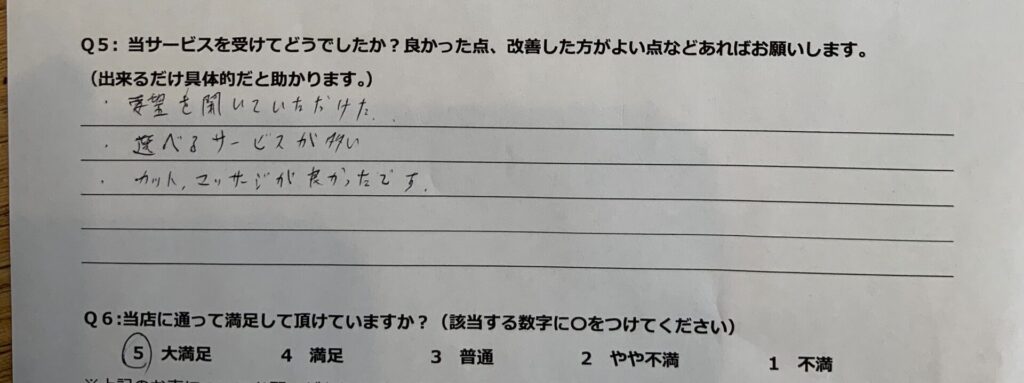 Q5: 当サービスを受けてどうでしたか?良かった点、改善した方がよい点などあればお願いします。
(出来るだけ具体的だと助かります。)
・要望を聞いていただけた.
・選べるサービスが多い
・カット,マッサージが良かったです.
Q6:当店に通って満足して頂けていますか?(該当する数字に〇をつけてください)
5 大満足 4 満足 3 普通 2 やや不満 1 不満